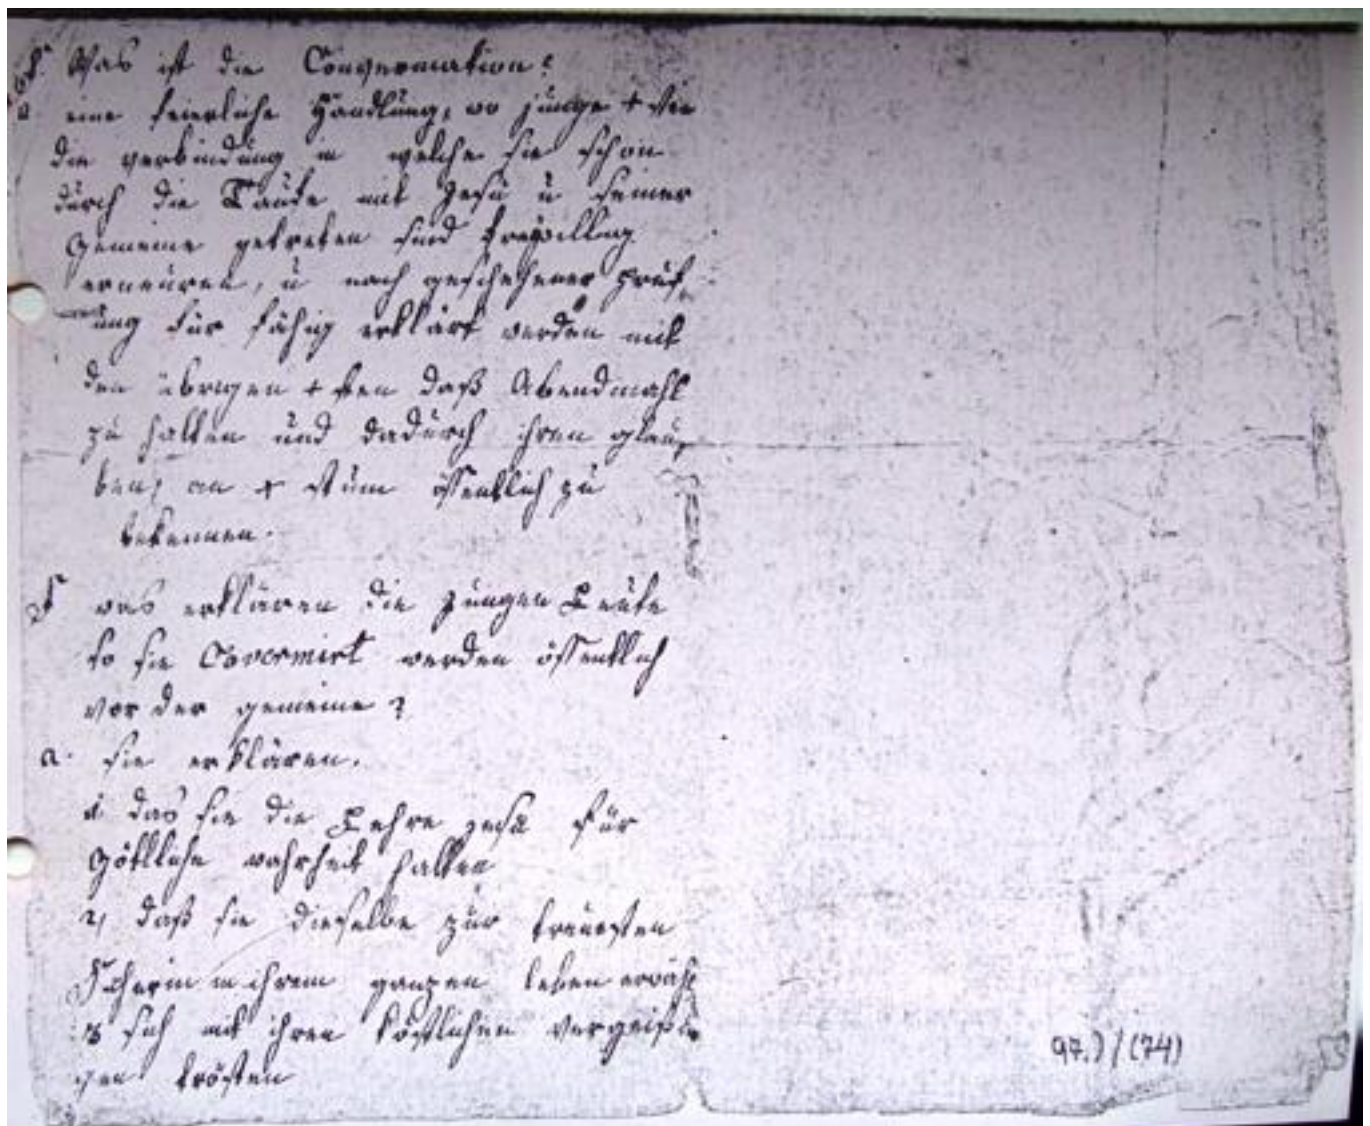 F. Was ist die Convermation?
a eine feierliche Handlung, wo junge + sten
die verbindung in welche sie schon
durch die Taufe mit Jesu u seiner
Gemeine getreten sind freywillig
erneuren, u nach geschehener Prüf,
ung für fähig erklärt werden mit
den übrigen + sten daß Abendmahl
zu halten und dadurch ihren glau,
ben, an + stum öffentlich zu
bekennen.
F was erklären die jungen Leute
so sie Covermirt werden öffentlich
vor der gemeine?
a. sie erklären.
1. das sie die Lehre Jesu für
Göttliche wahrheit halten
2, daß sie dieselbe zur treuesten
in ihrem ganzen leben erwähl
3 sich mit ihren köstlichen
gen trösten
97.) / (74)